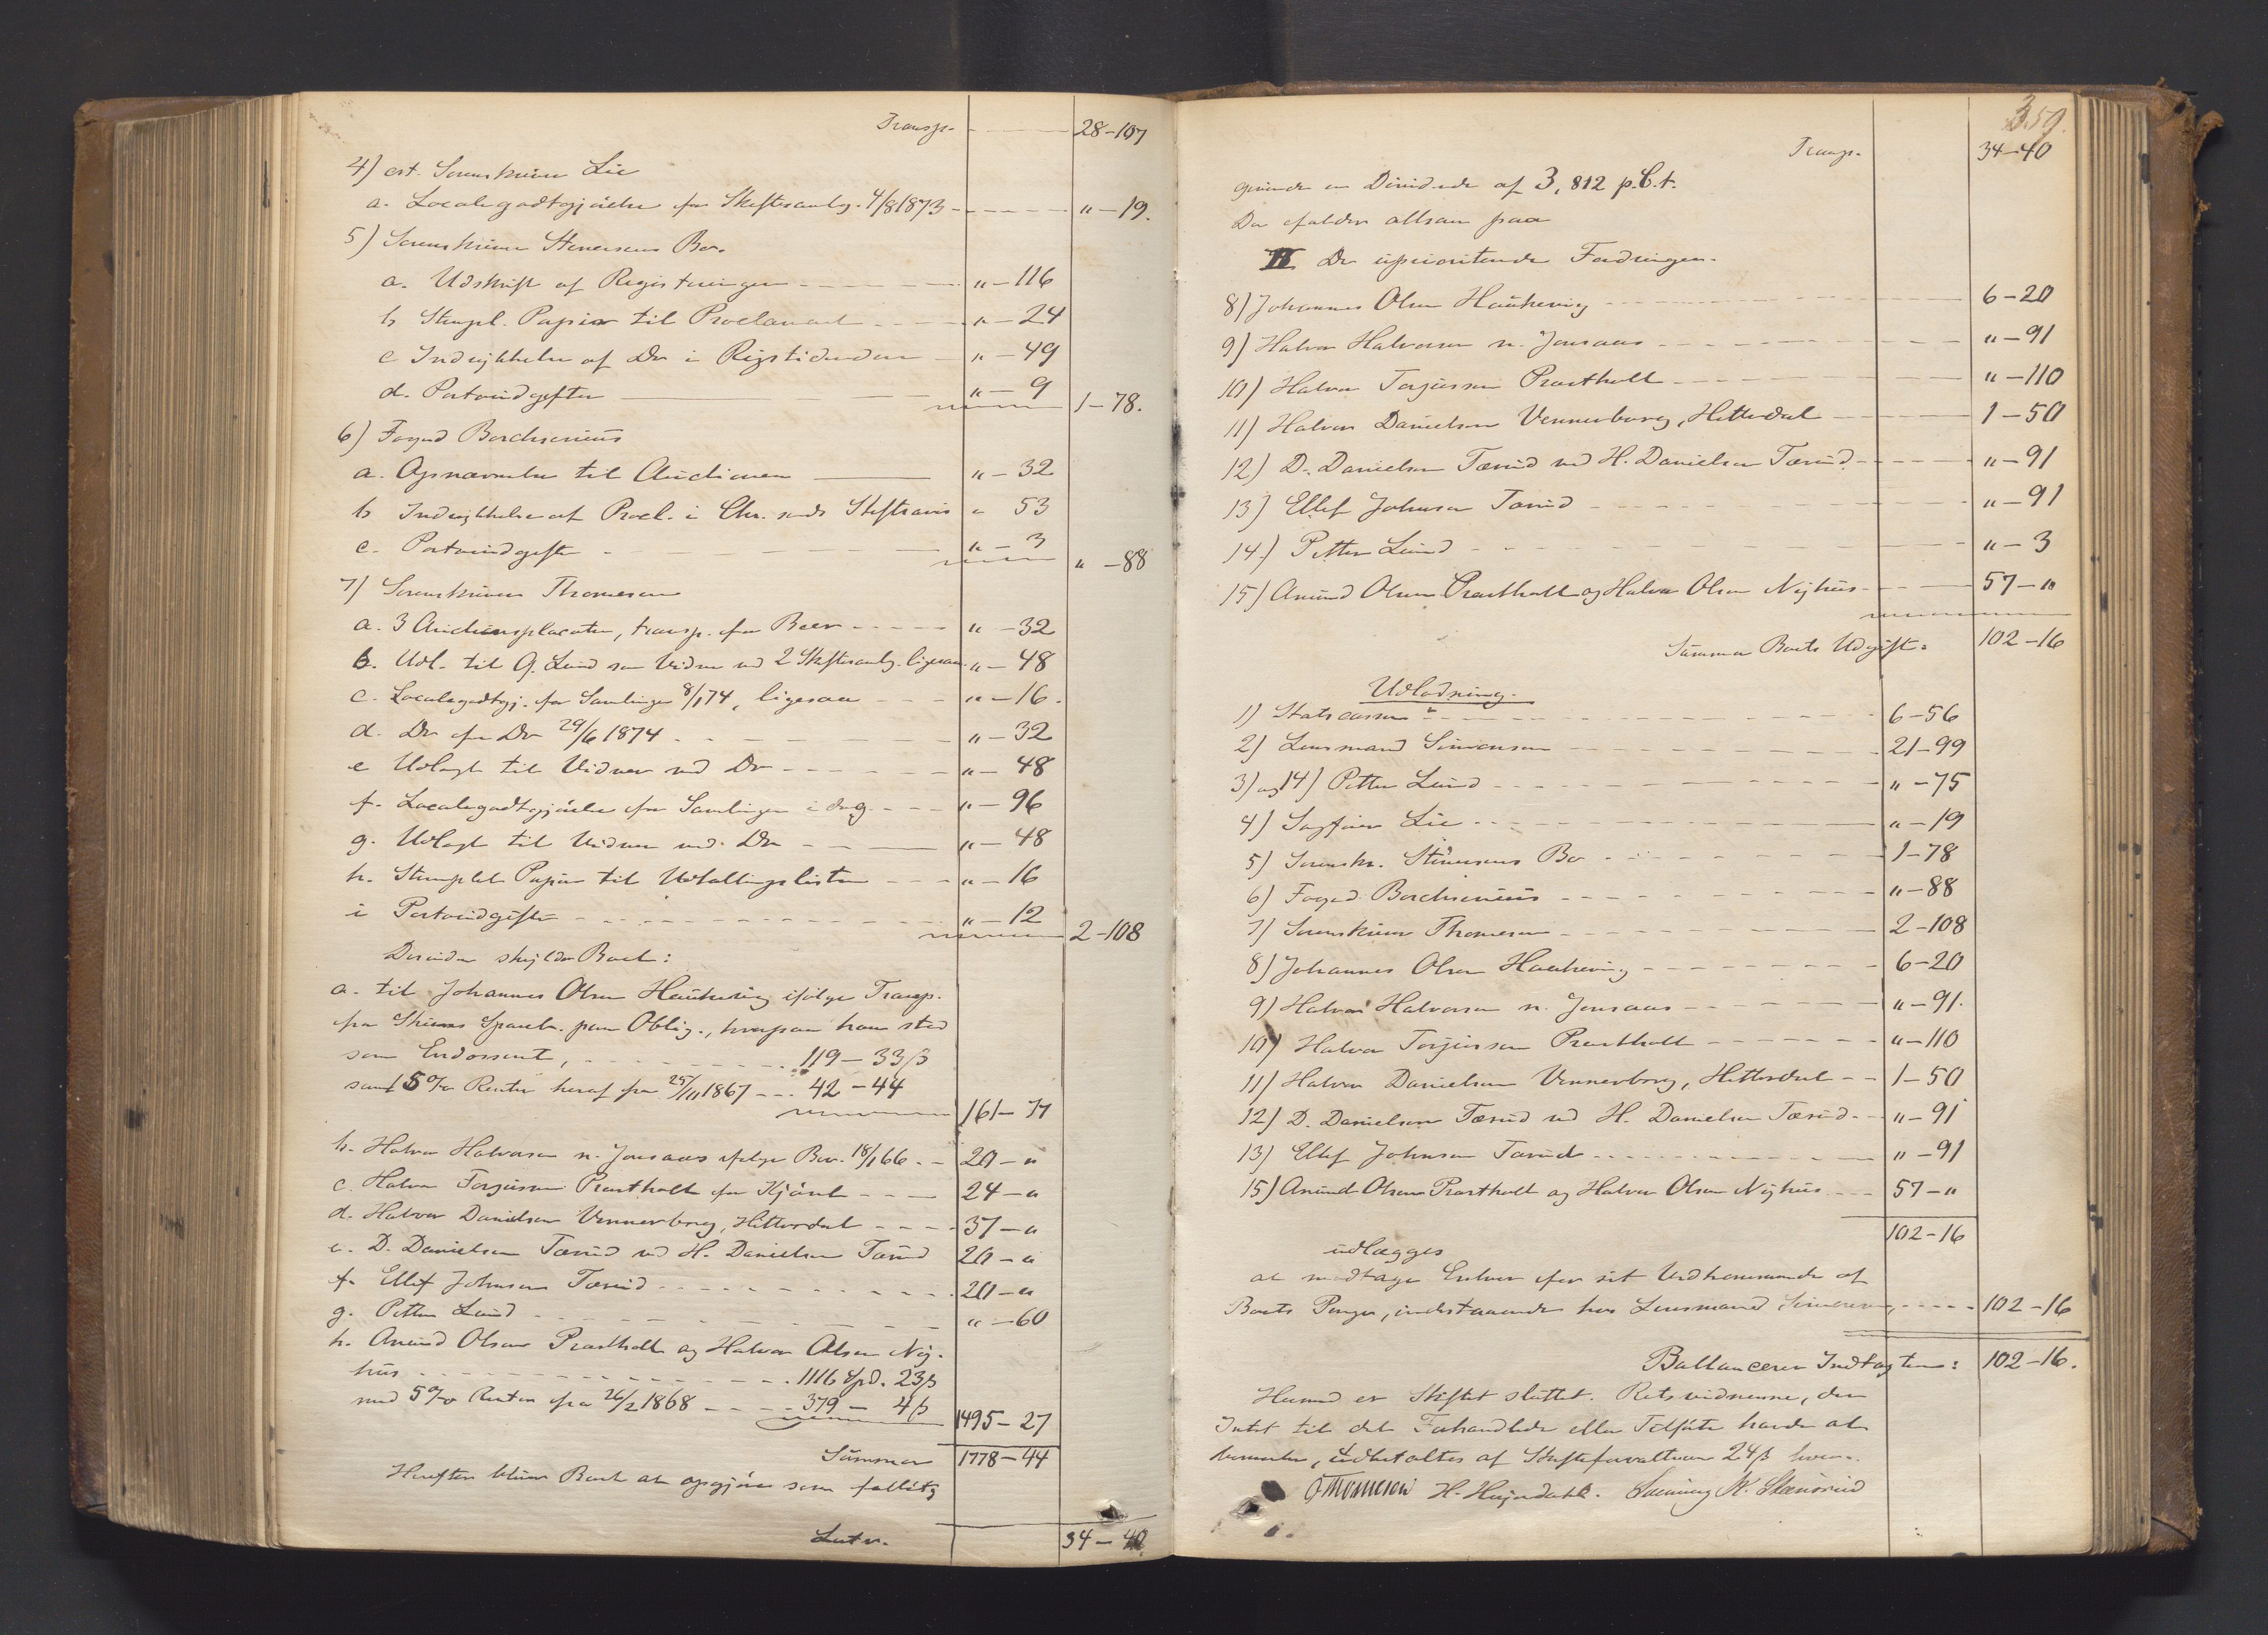 Transp. 28-107
4) cst. Sorenskriver Lie
a. Localegodtgjörelse for Skiftesamlg. 4/8 1873 " - 19.
5) Sorenskriver Stenersens Bo.
a. Udskrift af Registreringen " - 116
b Stempl. Papir til Proclamaet " - 24
c Indrykkelse af Do i Rigstidenden " - 49
d. Portoudgifter " - 9 1-78.
6) Foged Borchsenius
a. Opnævnelse til Auctionen " - 32
b Indrykkelse af Procl. i Chr.sands Stiftsavis " 53
c. Portoudgifter " - 3 " - 88
7) Sorenskriver Thomesen
a. 3 Auctionsplacater, transp. for Boer " - 32
b. Udl. til G. Lund som Vidne ved 2 Skiftesamlg. ligesaa " - 48
c. Localegodtgj. for Samlingen 8/1 74, ligesaa " - 16.
d. Do for Do 29/6 1874 " - 32
e Udlagt til Vidner ved Do " - 48
f. Localegodtgjörelse for Samlingen i dag " - 96
g. Udlagt til Vidner ved Do " - 48
h. Stemplet Papir til Udlodningslisten " - 16
i Portoudgifter " - 12 2-108
Desuden skylder Boet:
a. til Johannes Olsen Haukevig ifölge Transp.
fra Skiens Spareb. paa Oblig., hvorpaa han stod
som Endossent, 119 - 33 ß
samt 5 % Renter heraf fra 25/11 1867 42 - 44
161 - 77
b. Halvor Halvorsen n. Jonsaas ifölge Bev. 18/1 66 20 - "
c. Halvor Torjussen Præstholt for Kjörsel 24 - "
d. Halvor Danielsen Vennerborg, Hitterdal 37 - "
e. D. Danielsen Tærud ved H. Danielsen Tærud 20 - "
f. Ellef Johnsen Tærud 20 - "
g. Petter Lund " - 60
h. Anund Olsen Præstholt og Halvor Olsen Ny-
hus 1116 Spd. 23 ß
med 5 % Renter fra 26/2 1868 379 - 4 ß
1495 - 27
Summa 1778 - 44
Herefter bliver Boet at opgjöre som fallit,
Latr. 34 - 40
359.
Transp. 34-40
givende en Dividende af 3,812 p.C.t.
Der falder altsaa paa
II De uprioriterede Fordringer.
8) Johannes Olsen Haukevig 6-20
9) Halvor Halvorsen n. Jonsaas " - 91
10) Halvor Torjussen Præstholt " - 110
11) Halvor Danielsen Vennerborg, Hitterdal 1 - 50
12) D. Danielsen Tærud ved H. Danielsen Tærud " - 91
13) Ellef Johnsen Tærud " - 91
14) Petter Lund " - 3
15) Anund Olsen Præstholt og Halvor Olsen Nyhus 57 - "
Summa Boets Udgift: 102-16
Udlodning.
1) Statscassen 6-56
2) Lensmand Simonsen 21-99
3) og 14) Petter Lund " - 75
4) Sagförer Lie " - 19
5) Sorenskr. Stenersens Bo 1-78
6) Foged Borchsenius " - 88
7) Sorenskriver Thomesen 2-108
8) Johannes Olsen Haukevig 6-20
9) Halvor Halvorsen n. Jonsaas " - 91.
10) Halvor Torjussen Præstholt " - 110
11) Halvor Danielsen Vennerborg, Hitterdal 1 - 50
12) D. Danielsen Tærud ved H. Danielsen Tærud " - 91
13) Ellef Johnsen Tærud " - 91
15) Anund Olsen Præstholt og Halvor Olsen Nyhus 57 - "
102-16
udlægges
at modtage Enhver for sit Vedkommende af
Boets Penge, indestaaende hos Lensmand Simonsen, 102-16
Ballancerer Indtægten: 102-16.
Hermed er Skiftet sluttet. Retsvidnerne, der
Intet til det Forhandlede eller Tilförte havde at
bemærke, udbetaltes af Skifteforvalteren 24 ß hver.
GThomesen H. Hejerdahl. Sveinung K. Stensrud